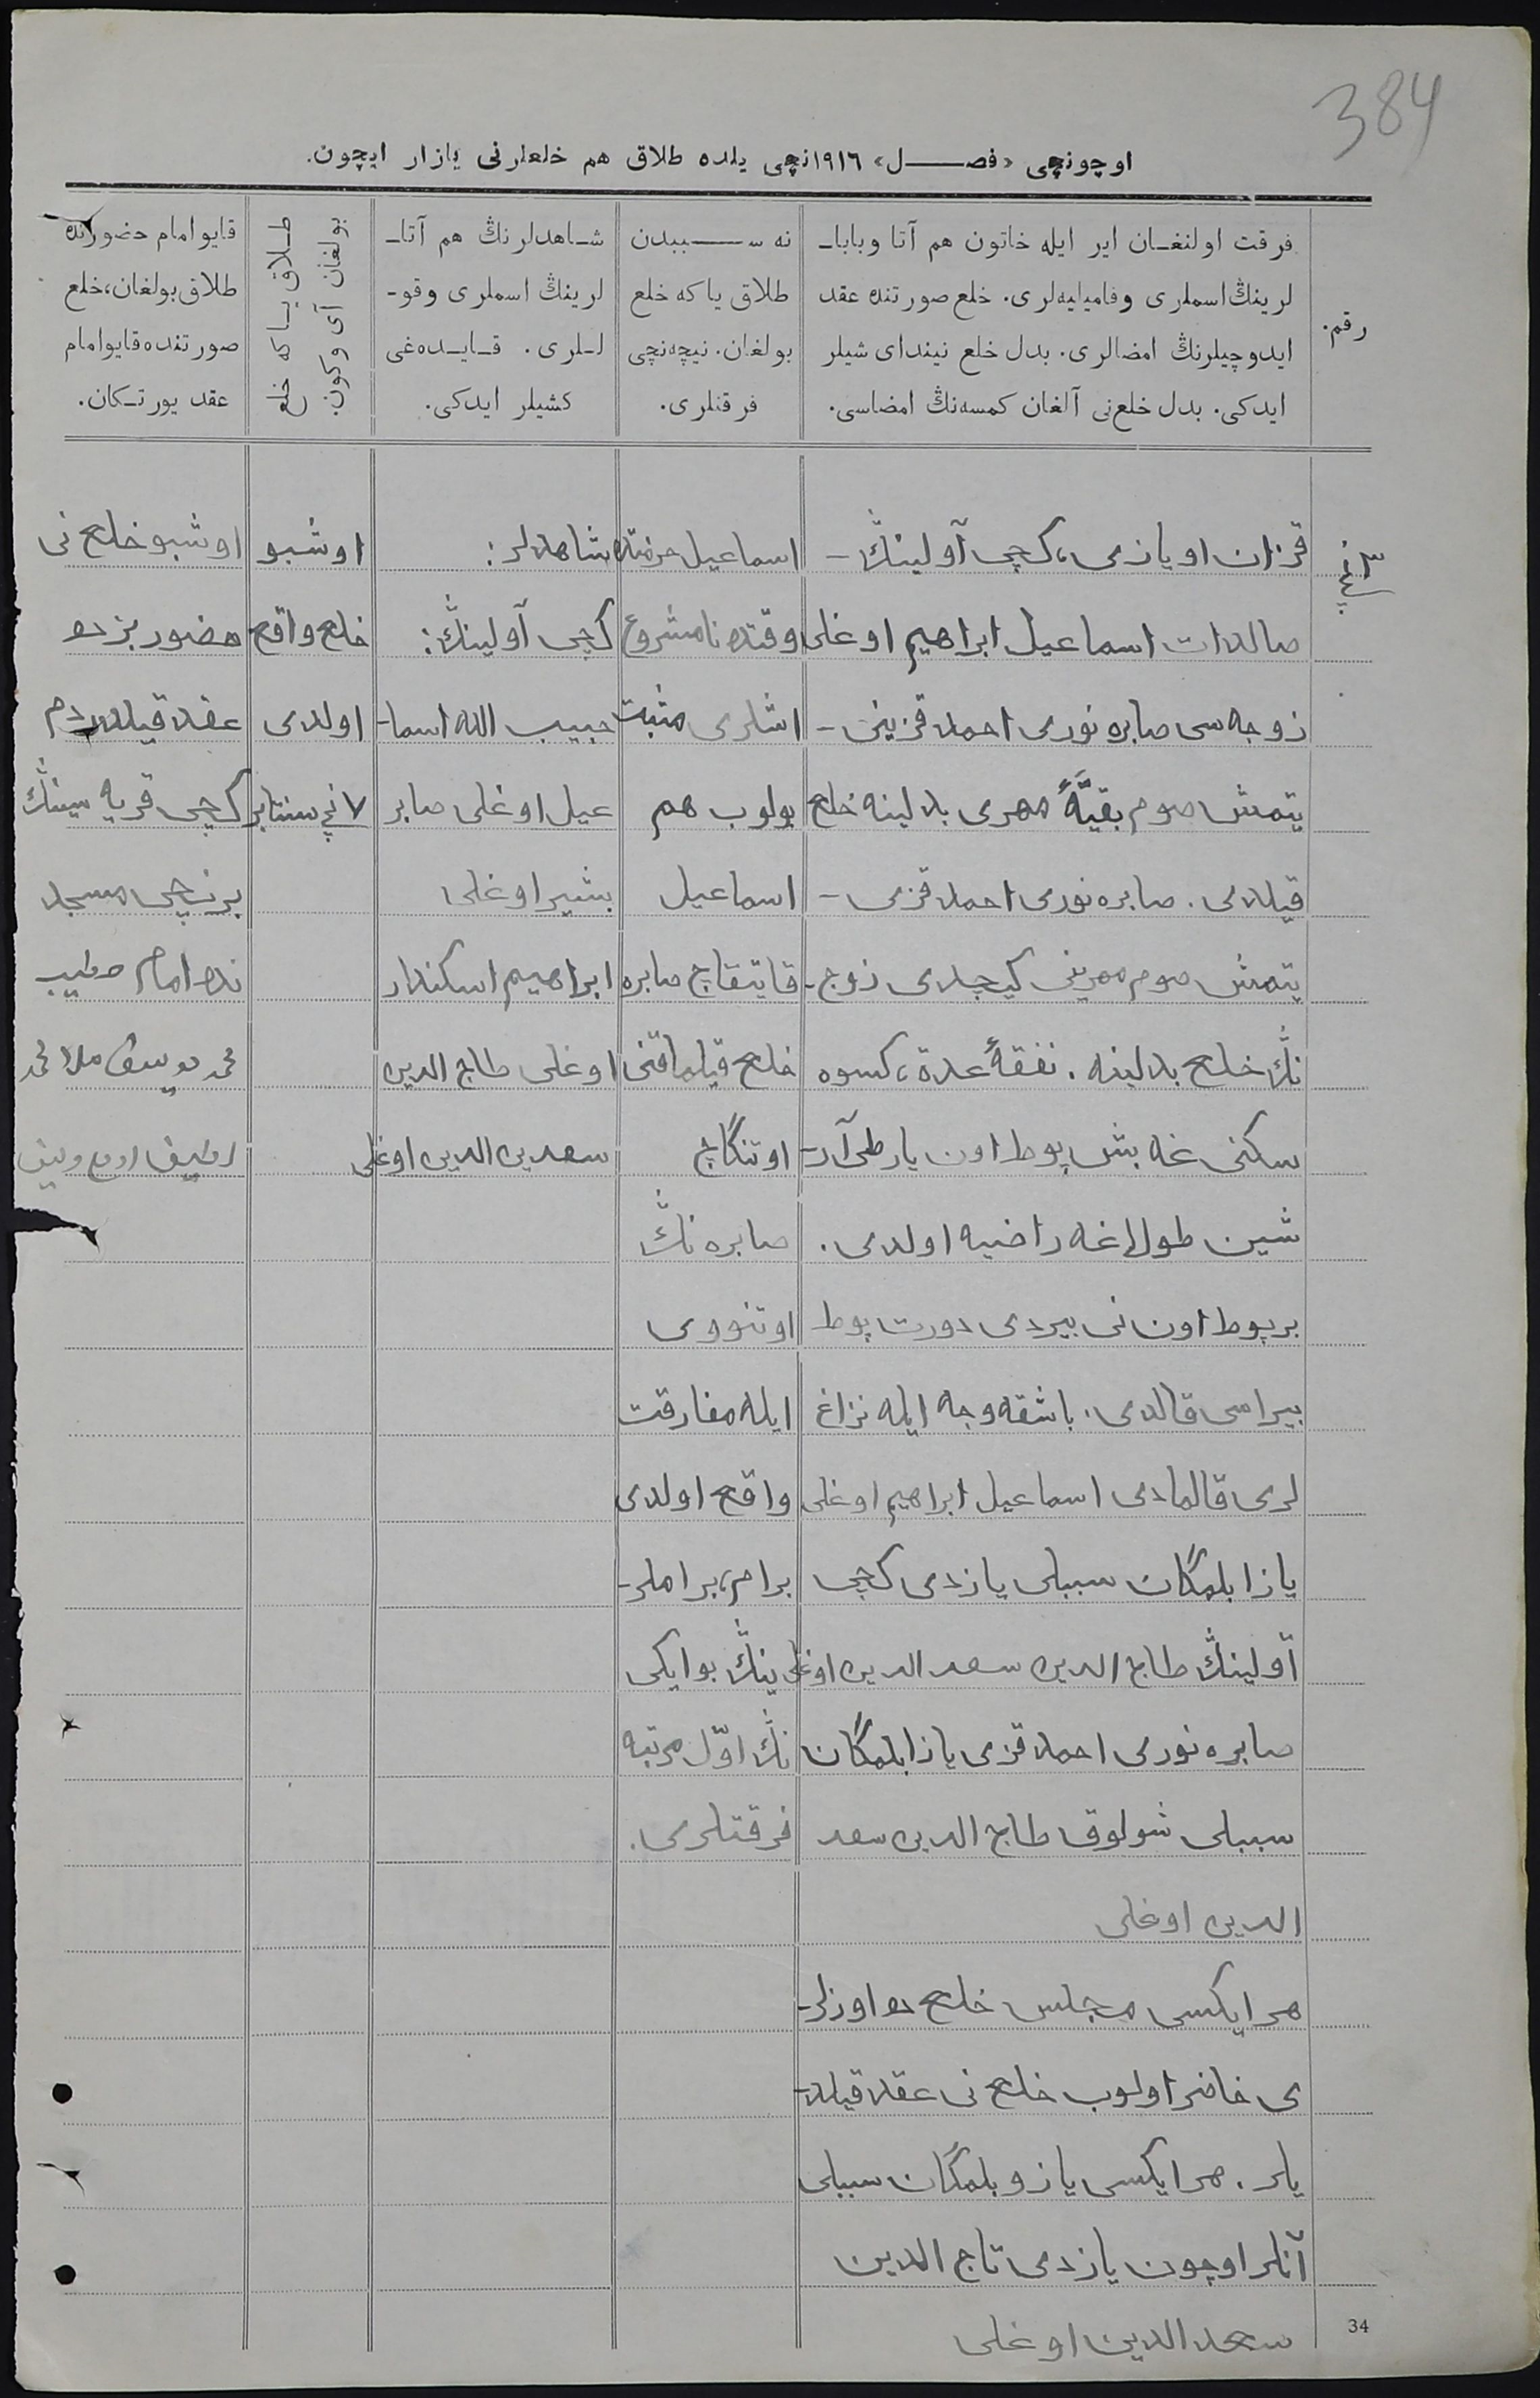 384
اوچونچی «فصل» ۱۹۱٦نچی یلده طلاق هم خلعلرنی یازار ایچون.
رقم.
فرقت اولنغان ایر ایله خاتون هم آتا وبابا-
لرینڭ اسملری وفامیلیه‌لری. خلع صورتنده عقد
ایدوچیلرنڭ امضالری. بدل خلع نیندای شیلر
ایدکی. بدل خلع‌نی آلغان کمسه‌نڭ امضاسی.
نه سببدن
طلاق یا که خلع
بولغان. نیچه‌نچی
فرقتلری.
شاهدلرنڭ هم آتا-
لرینڭ اسملری وقو-
للری. قایده‌غی
کشیلر ایدکی.
طلاق یا که خلع
بولغان آی وکون.
قایو امام حضورنده
طلاق بولغان، خلع
صورتنده قایو امام
عقد یورتکان.
قزان اویازی، کچی آولینڭ-
صالدات اسماعیل ابراهیم اوغلی
زوجه‌سی صابره نوری احمد قزینی-
یتمش صوم بقیۀ مهری بدلینه خلع
قیلدی. صابره نوری احمد قزی-
یتمش صوم مهرینی کیچدی زوج-
نڭ خلع بدلینه. نفقۀ عدة، کسوه
سکنی غه بش پوط اون یارطی آر-
شین طولاغه راضیه اولدی.
بر پوط اون نی بیردی دورت پوط
بیراسی قالدی. باشقه وجه ایله نزاع
لری قالمادی اسماعیل ابراهیم اوغلی
یازا بلمگان سببلی یازدی کچی
آولینڭ طاج الدین سعد الدین اوغلی
صابره نوری احمد قزی یازا بلمگان
سببلی شولوق طاج الدین سعد
الدین اوغلی
هر ایکسی مجلس خلع ده اوزلر-
ی حاضر اولوب خلع نی عقد قیلد-
یلر. هر ایکسی یازو بلمگان سببلی
آنلر اوچون یازدی تاج الدین
سعد الدین اوغلی
اسماعیل
وقتده نامشروع
اشلری مثبت
بولوب هم
اسماعیل
قایتقاچ صابره
خلع قیلماقنی
اوتنگاچ
صابره نڭ
اوتنووی
ایله مفارقت
واقع اولدی
ینڭ بو ایکی
نڭ اوّل مرتبه
فرقتلری.
شاهدلر:
کچی آولینڭ:
حبیب الله اسما-
عیل اوغلی صابر
بشیر اوغلی
ابراهیم اسکندر
اوغلی طاج الدین
سعد الدین اوغلی
اوشبو
خلع واقع
اولدی
۷ نچی سنتابر
اوشبو خلع نی
حضور بزده
عقد قیلدردم
کچی قریه سینڭ
برنچی مسجد
نده امام خطیب
محمد یوسف ملا محمد
34